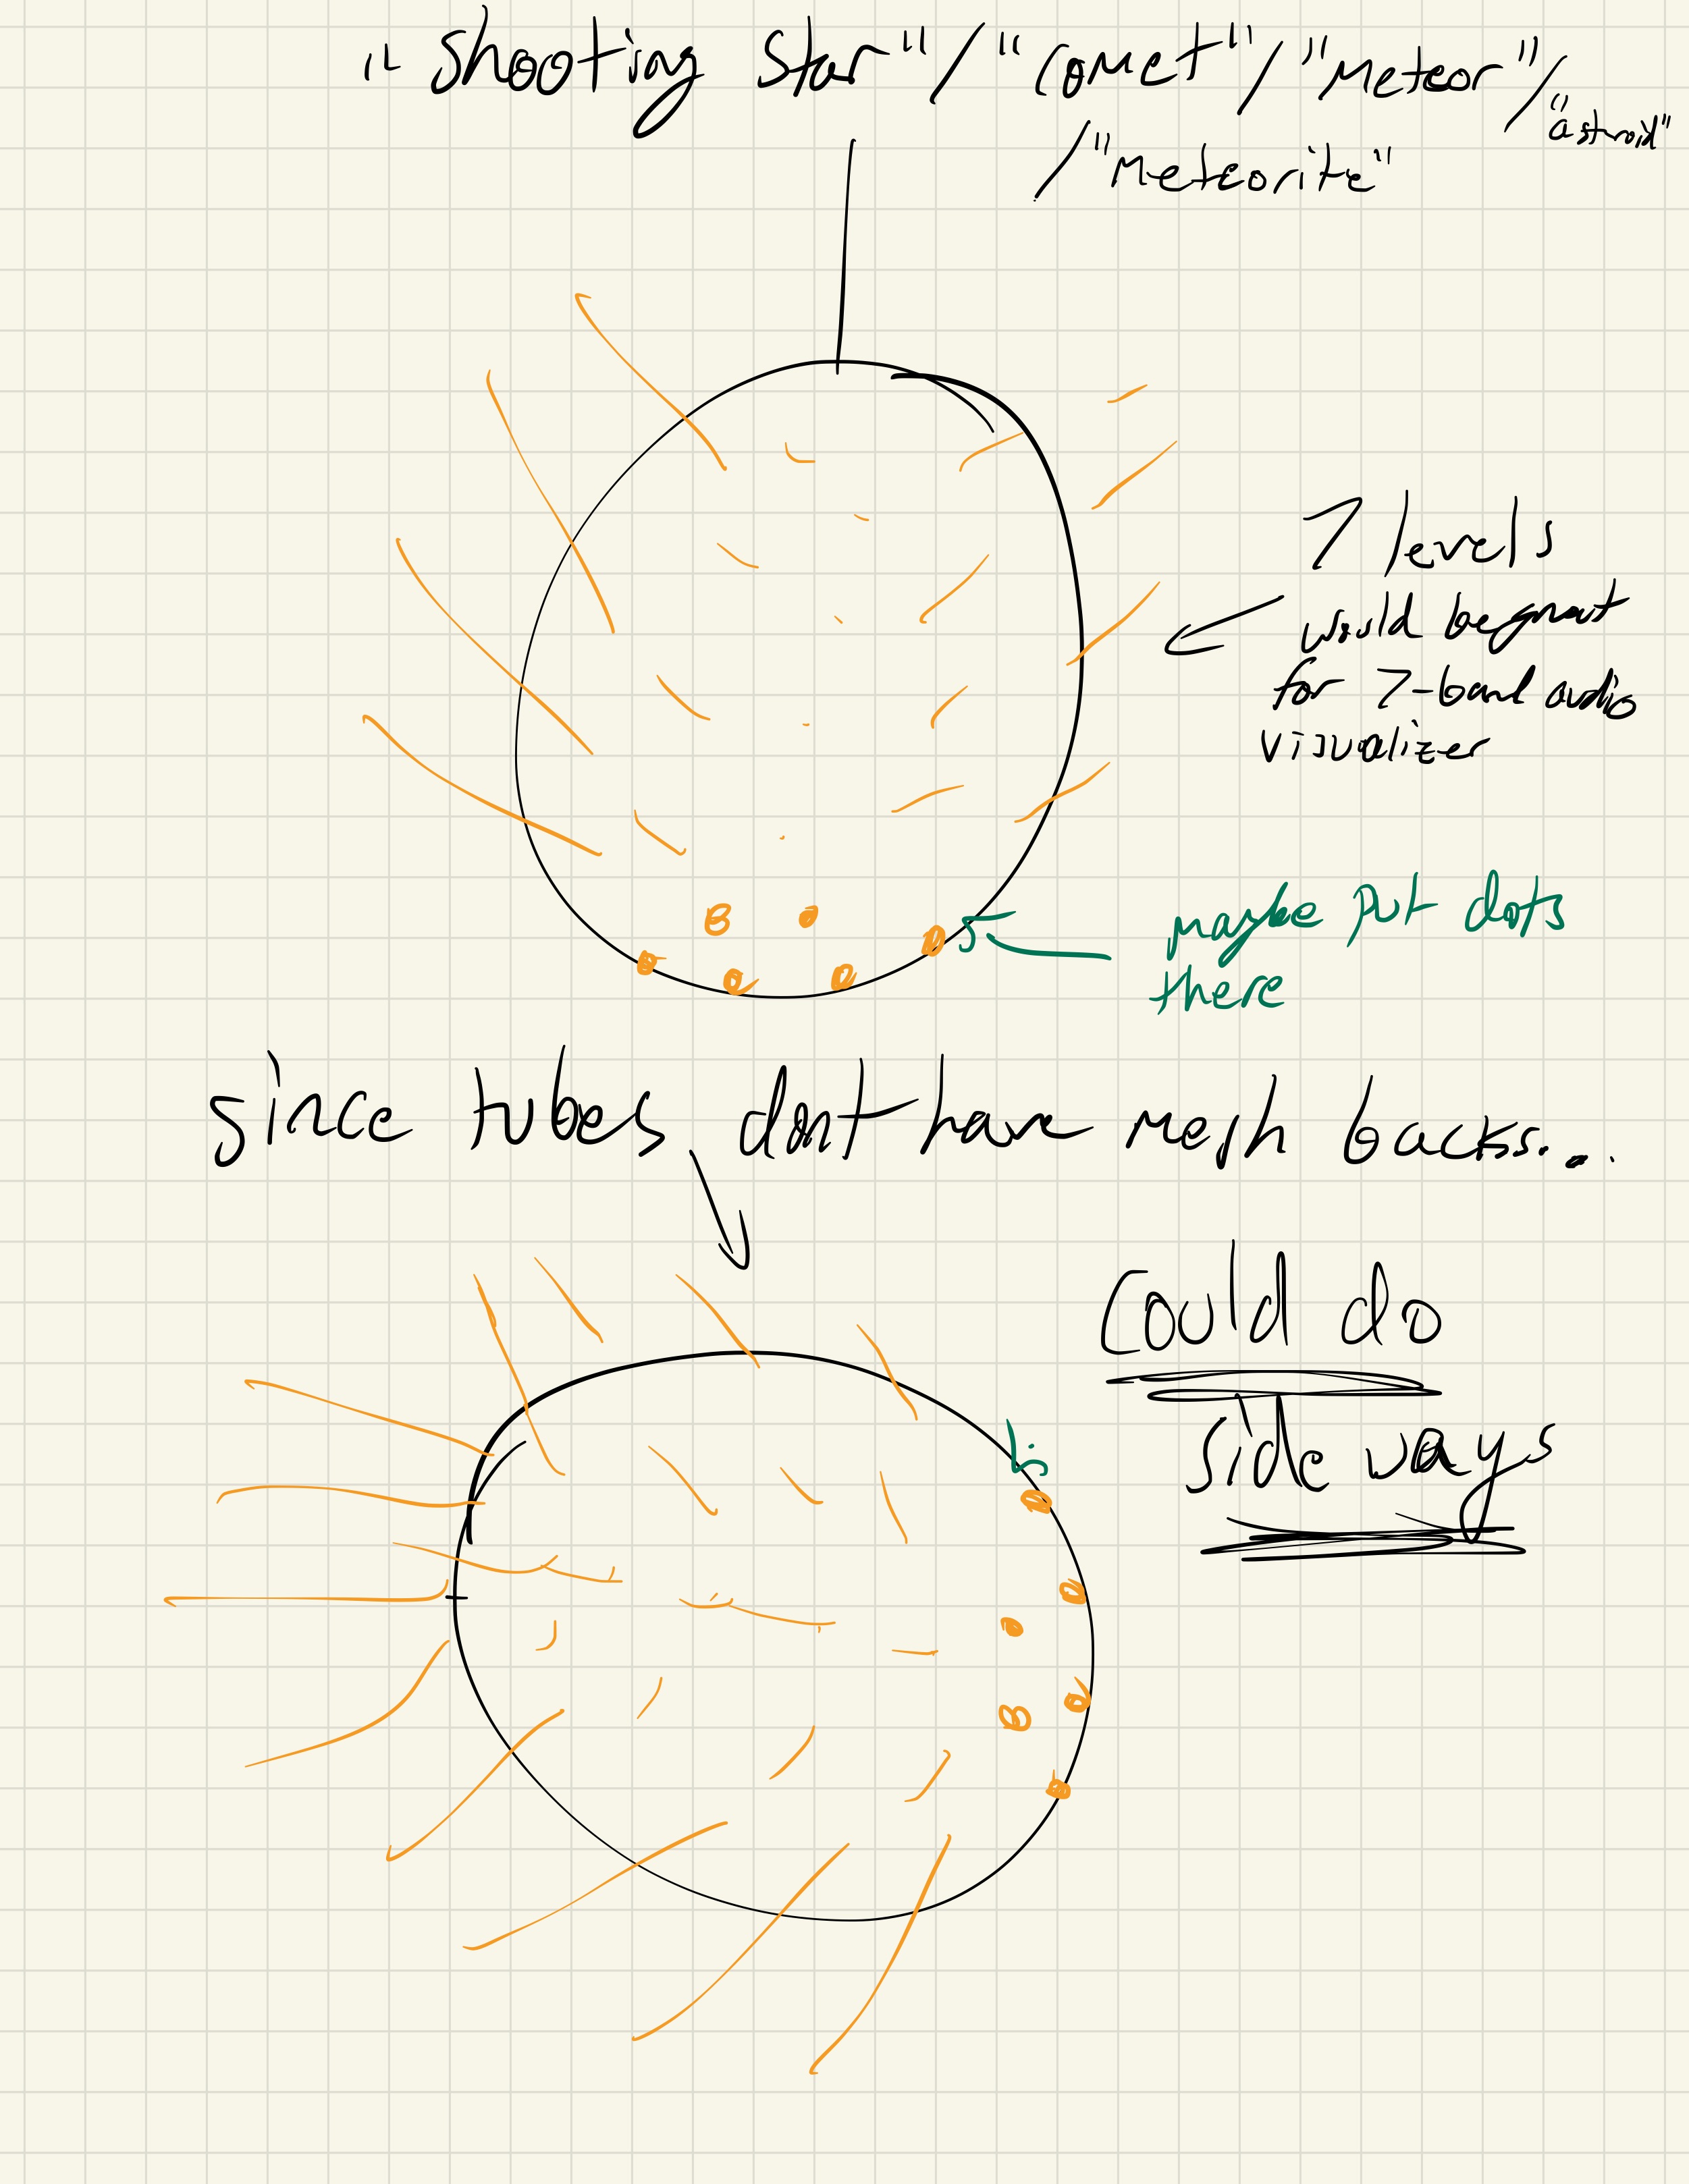 "Shooting Star"/"comet"/"Meteor"/"astroid"
/"Meteorite"
7 levels
would be great
for 7-band audio
visualizer
maybe put dots
there
since tubes dont have mesh backs...
Could do
side ways